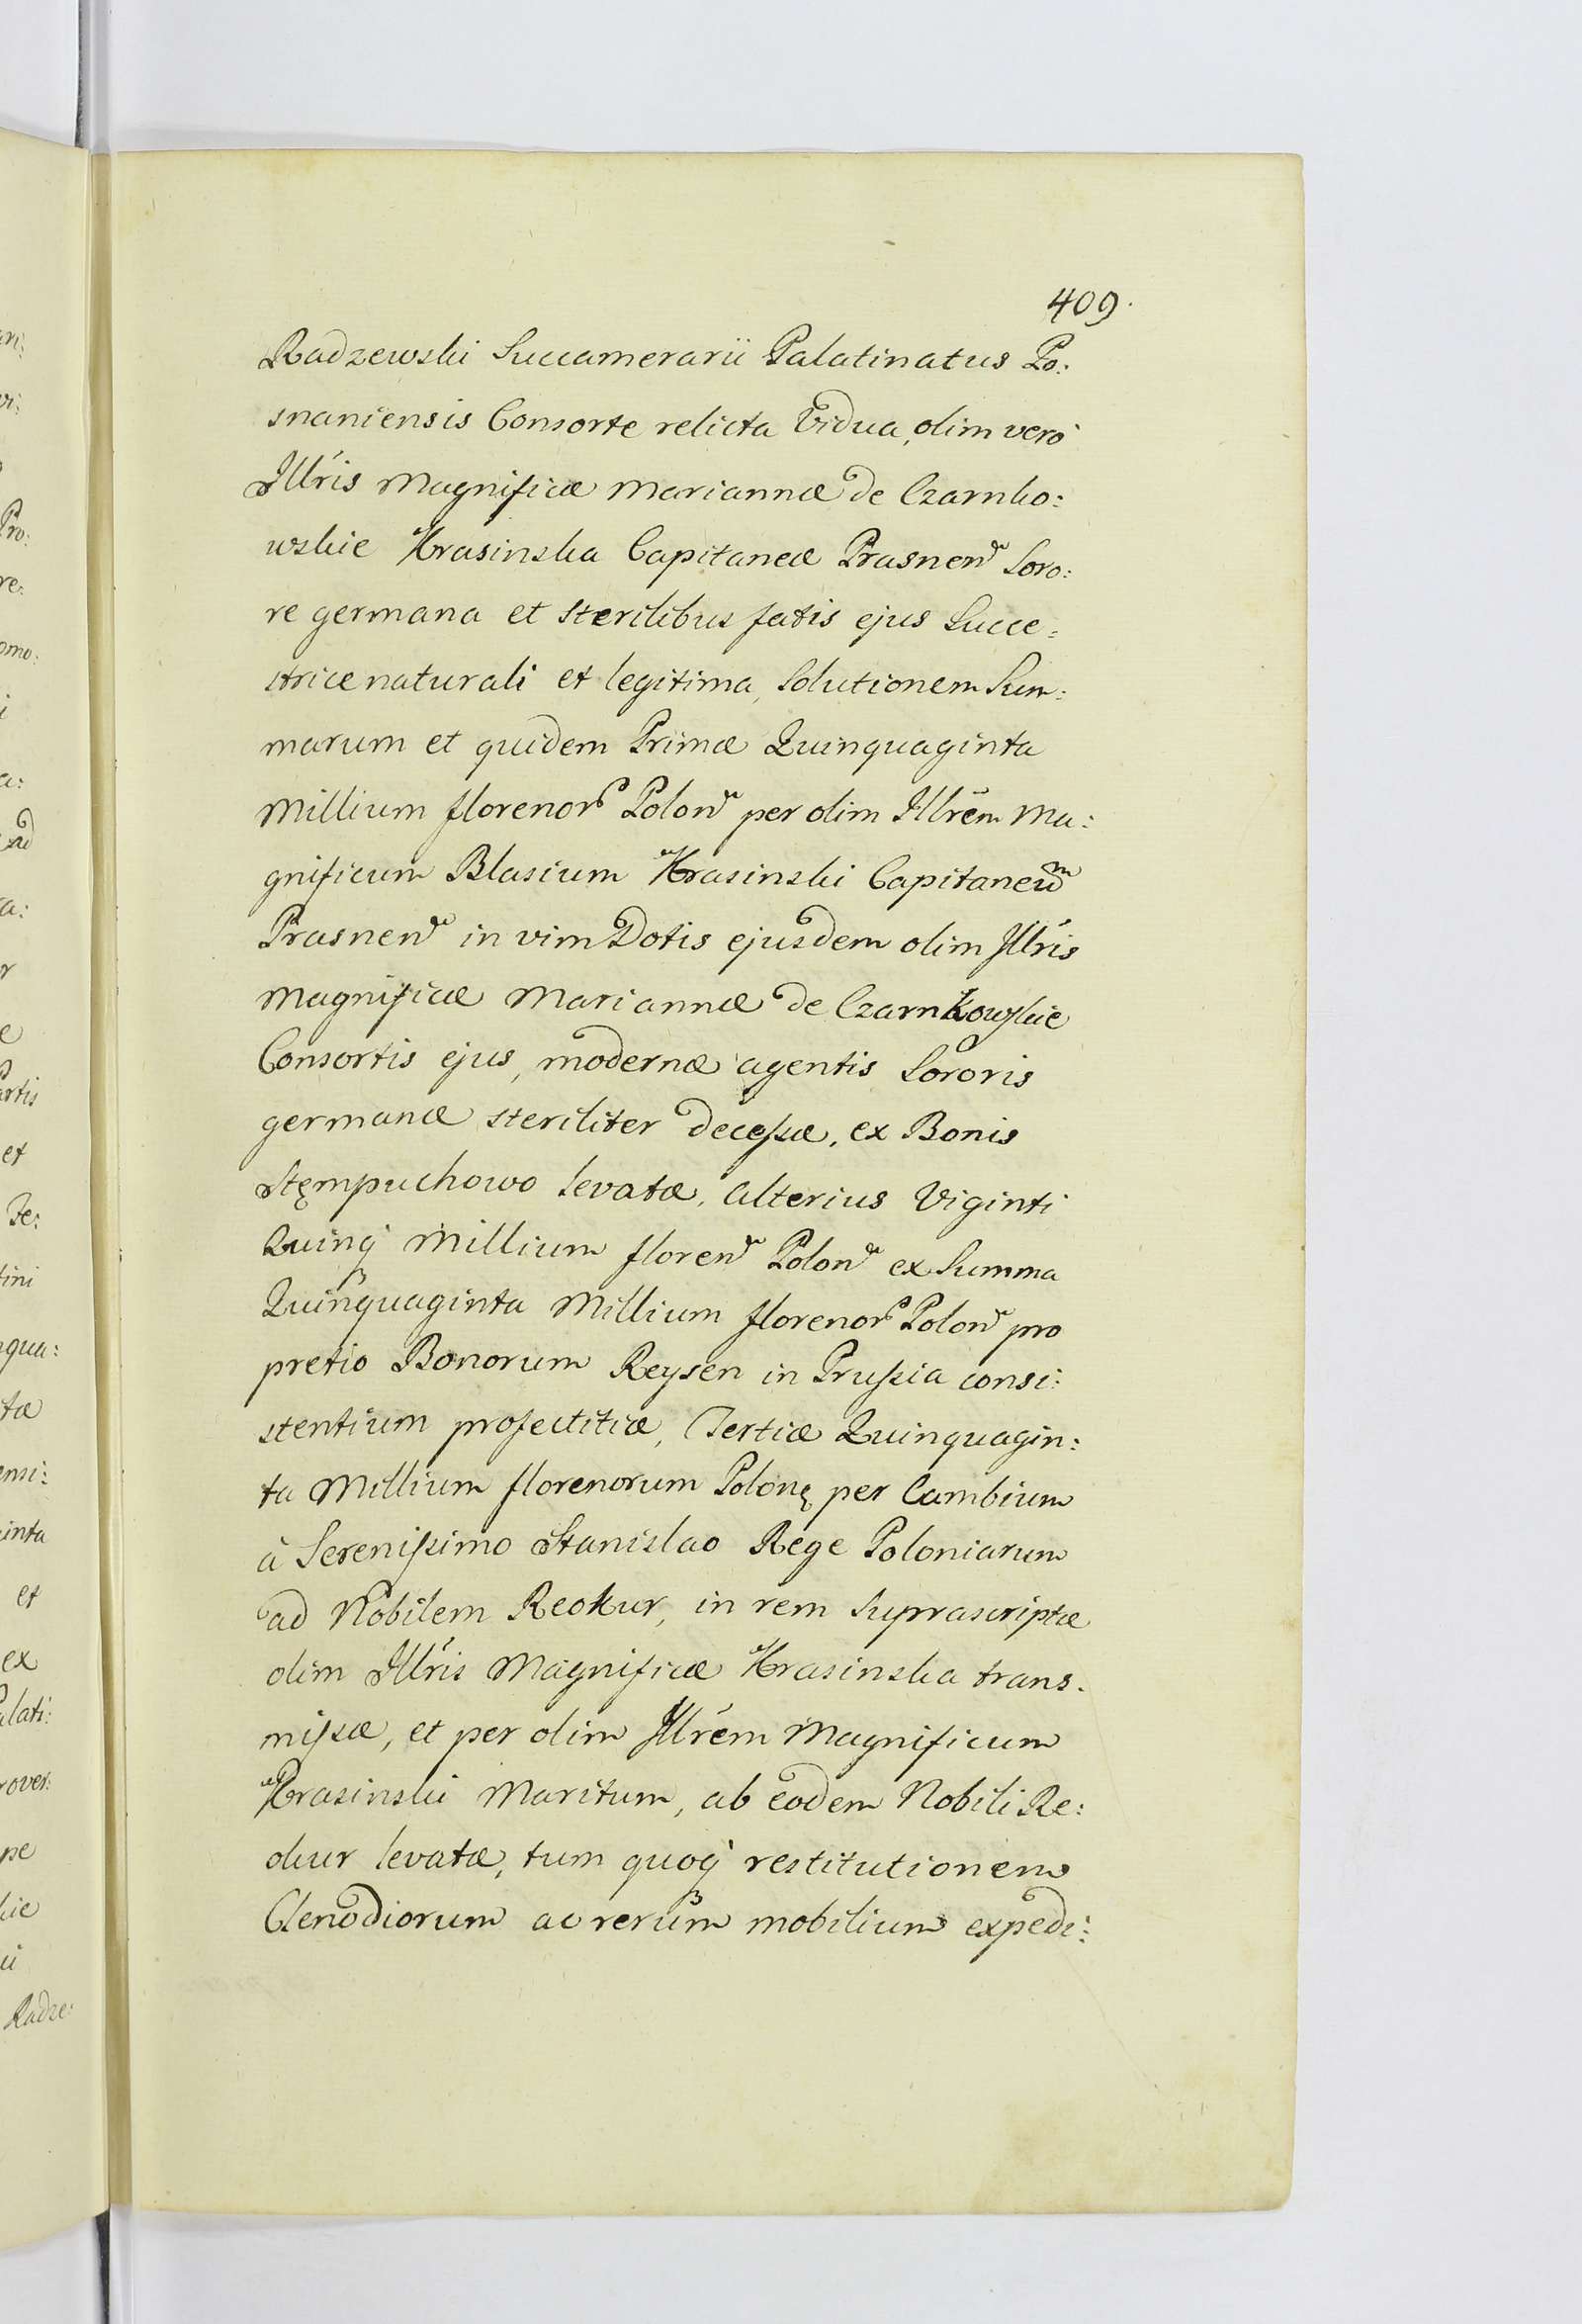 409.
Radzewski Succamerarii Palatinatus Po:
snaniensis Consorte relicta Vidua, olim verò
Illris Magnificæ Mariannæ de Czarnko:
wskie Krasinska Capitaneæ Prasnen Soro:
re germana et sterilibus fatis ejus Succe:
strice naturali et legitima, Solutionem Sum:
marum et quidem Primæ Quinquaginta
Millium florenor Polon per olim Illrem Ma:
gnificum Blasium Krasinski Capitaneum
Prasnen in vim Dotis ejusdem olim Illris
Magnificæ Mariannæ de Czarnkowskie
Consortis ejus, modernæ agentis Sororis
germanæ steriliter decessæ, ex Bonis
Stęmpuchowo levatæ, alterius Viginti
Quinq Millium floren Polon ex Summa
Quinquaginta Millium florenor Polon pro
pretio Bonorum Reysen in Prussia consi:
stentium profectitiæ, Tertiæ Quinquagin:
ta Millium florenorum Polon per Cambium
à Serenissimo Stanislao Rege Poloniarum
ad Nobilem Reokur, in rem Suprascriptæ
olim Illris Magnificæ Krasinska trans.
missæ, et per olim Illrem Magnificum
Krasinski Maritum, ab eodem Nobili Re:
okur levatæ, tum quoq restitutionem
Clenodiorum ac rerum mobilium expedi: